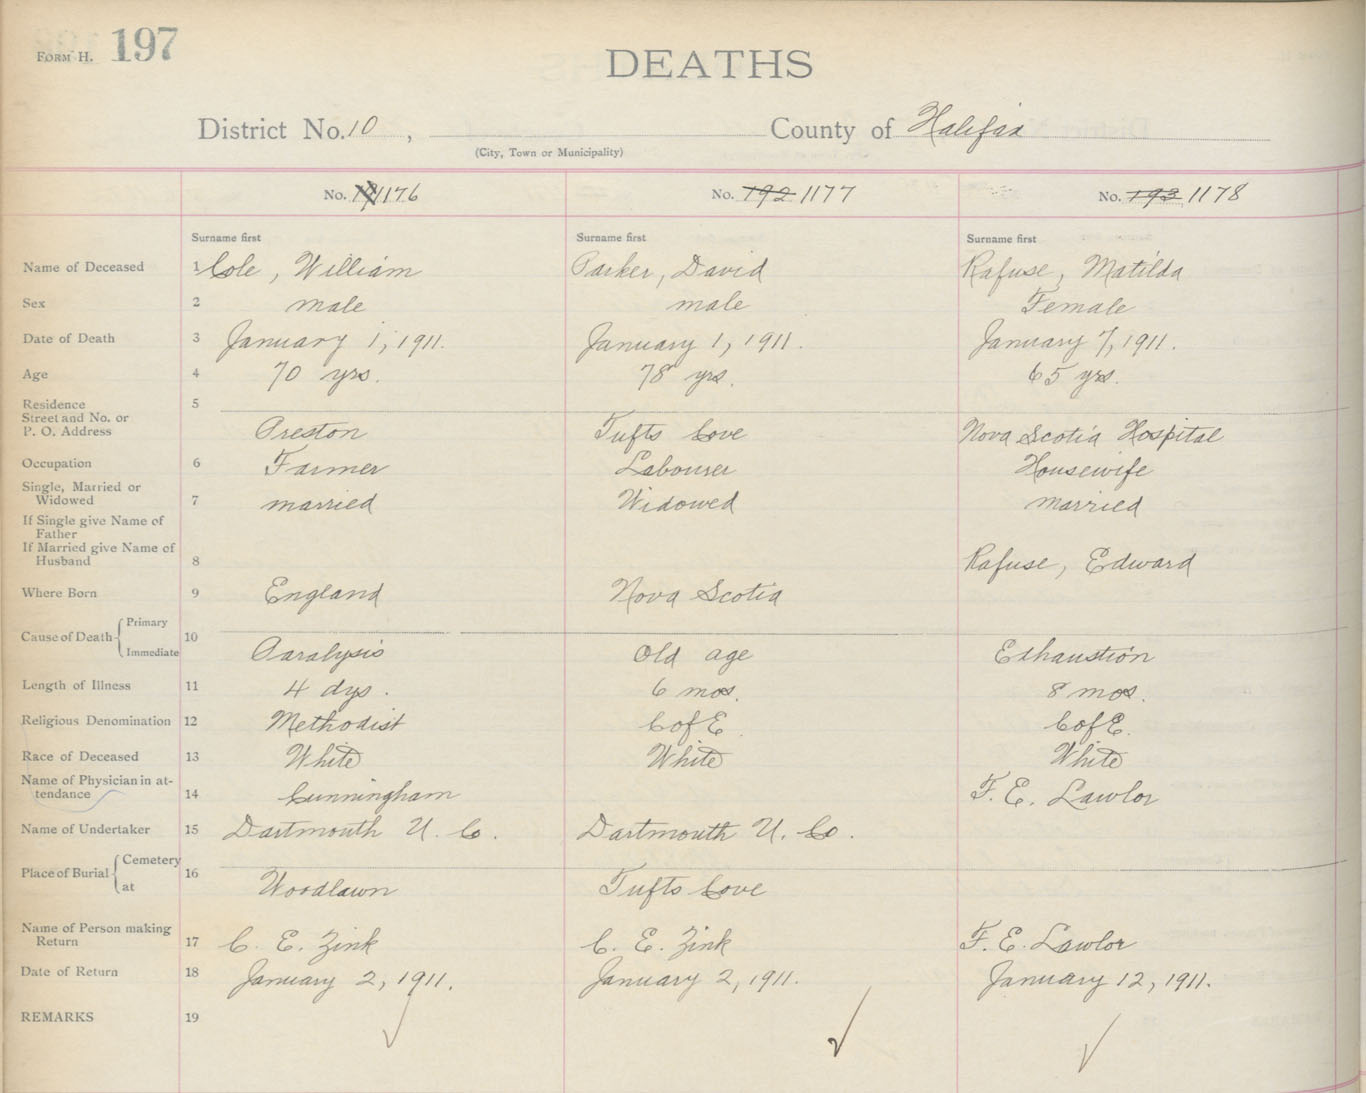 FORM H. 197
DEATHS
District No. 10 , County of Halifax
(City, Town or Municipality)
No. 191 1176 No. 192 1177 No. 193 1178
Surname first Surname first Surname first
Name of Deceased 1 Cole, William Parker, David Rafuse, Matilda
Sex 2 male male Female
Date of Death 3 January 1, 1911. January 1, 1911. January 7, 1911.
Age 4 70 yrs. 78 yrs. 65 yrs.
Residence 5
Street and No. or
P. O. Address Preston Tufts Cove Nova Scotia Hospital
Occupation 6 Farmer Labourer Housewife
Single, Married or
Widowed 7 married Widowed married
If Single give Name of
Father
If Married give Name of
Husband 8 Rafuse, Edward
Where Born 9 England Nova Scotia
Primary
Cause of Death 10
Immediate Paralysis Old age Exhaustion
Length of Illness 11 4 dys. 6 mos. 8 mos.
Religious Denomination 12 Methodist C of E. C of E.
Race of Deceased 13 White White White
Name of Physician in at-
tendance 14 Cunningham F. E. Lawlor
Name of Undertaker 15 Dartmouth U. Co. Dartmouth U. Co.
Cemetery
Place of Burial 16
at Woodlawn Tufts Cove
Name of Person making
Return 17 C. E. Zink C. E. Zink F. E. Lawlor
Date of Return 18 January 2, 1911. January 2, 1911. January 12, 1911.
REMARKS 19